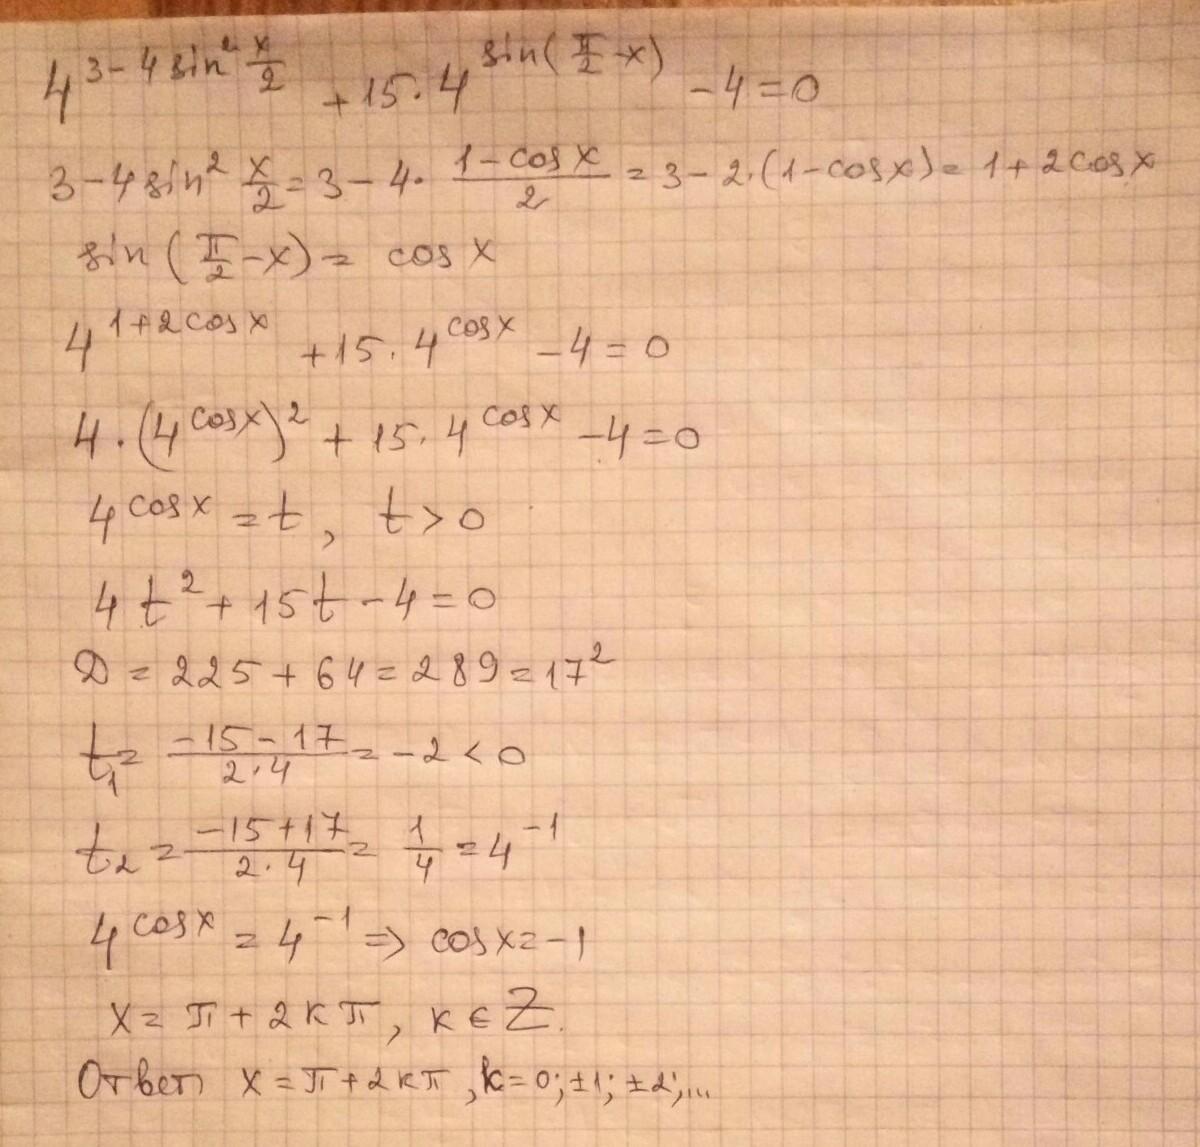 4^(3-4sin² x/2) + 15·4^(sin(π/2-x)) - 4 = 0
3-4sin² x/2 = 3-4· (1-cosx)/2 = 3-2·(1-cosx) = 1+2cosx
sin(π/2-x) = cosx
4^(1+2cosx) + 15·4^(cosx) - 4 = 0
4·(4^(cosx))² + 15·4^(cosx) - 4 = 0
4^(cosx) = t, t > 0
4t² + 15t - 4 = 0
D = 225 + 64 = 289 = 17²
t₁ = (-15-17)/(2·4) = -2 < 0
t₂ = (-15+17)/(2·4) = 1/4 = 4^(-1)
4^(cosx) = 4^(-1) ⇒ cosx = -1
x = π + 2kπ, k ∈ Z.
Ответ x = π + 2kπ, k = 0; ±1; ±2; ...